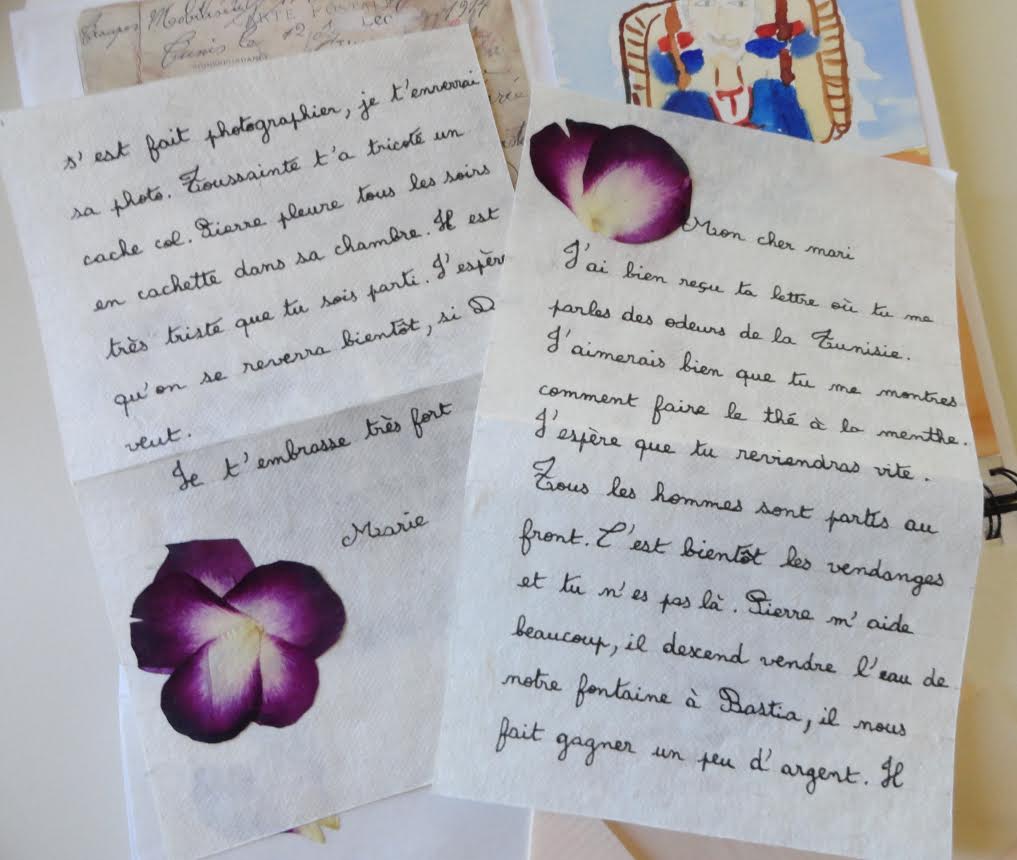 Mon cher mari
J'ai bien reçu ta lettre où tu me
parles des odeurs de la Tunisie.
J'aimerais bien que tu me montres
comment faire le thé à la menthe.
J'espère que tu reviendras vite.
Tous les hommes sont partis au
front. C'est bientôt les vendanges
et tu n'es pas là. Pierre m'aide
beaucoup, il descend vendre l'eau de
notre fontaine à Bastia, il nous
fait gagner un peu d'argent. Il
s'est fait photographier, je t'enverrai
sa photo. Toussainte t'a tricoté un
cache col. Pierre pleure tous les soirs
en cachette dans sa chambre. Il est
très triste que tu sois parti. J'espère
qu'on se reverra bientôt, si D
veut.
Je t'embrasse très fort
Marie
CARTE POSTALE
Tunis le